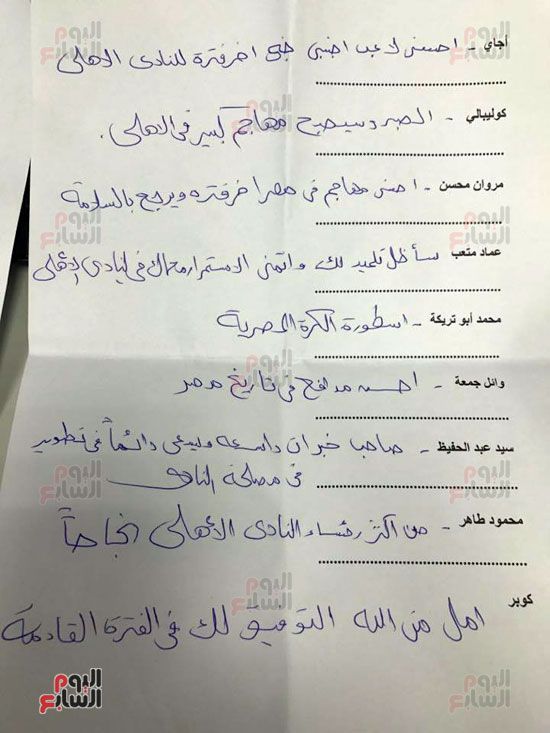 أجاي - احسن لاعب اجنبى جى اخر فترة للنادى الاهلى
كوليبالي - الصبر وسيصبح مهاجم كبير فى الاهلى .
مروان محسن - احسن مهاجم فى مصر اخر فتره ويرجع بالسلامة
عماد متعب - سأظل تلميذ لك واتمنى الاستمرار معاك فى النادى الأهلى
محمد أبو تريكة - اسطورة الكرة المصرية
وائل جمعة - احسن مدافع فى تاريخ مصر
سيد عبد الحفيظ - صاحب خبرات واسعه ويسعى دائماً فى تطوير
فى مصلحة النادى
محمود طاهر - من أكثر رؤساء النادى الأهلى انجاحاً
كوبر
امل من الله التوفيق لك فى الفترة القادمة
اليوم السابع